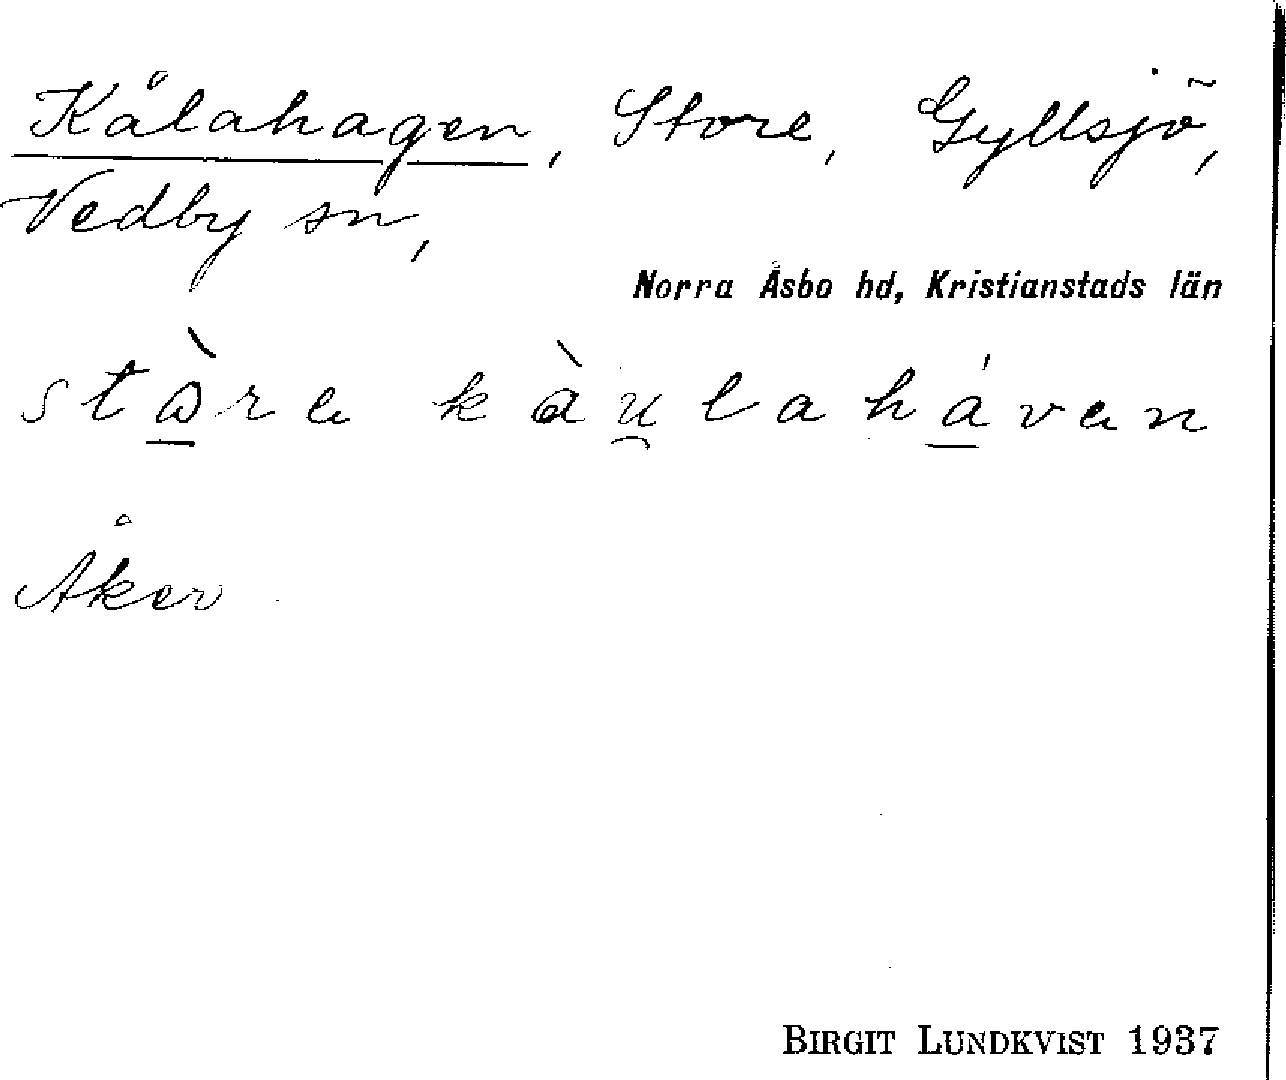 Kålahagen, Store, Gyllsjö,
Vedby sn,
Norra Åsbo hd, Kristianstads län
stàra kàu̯lahávan
Åker
BIRGIT LUNDKVIST 1937